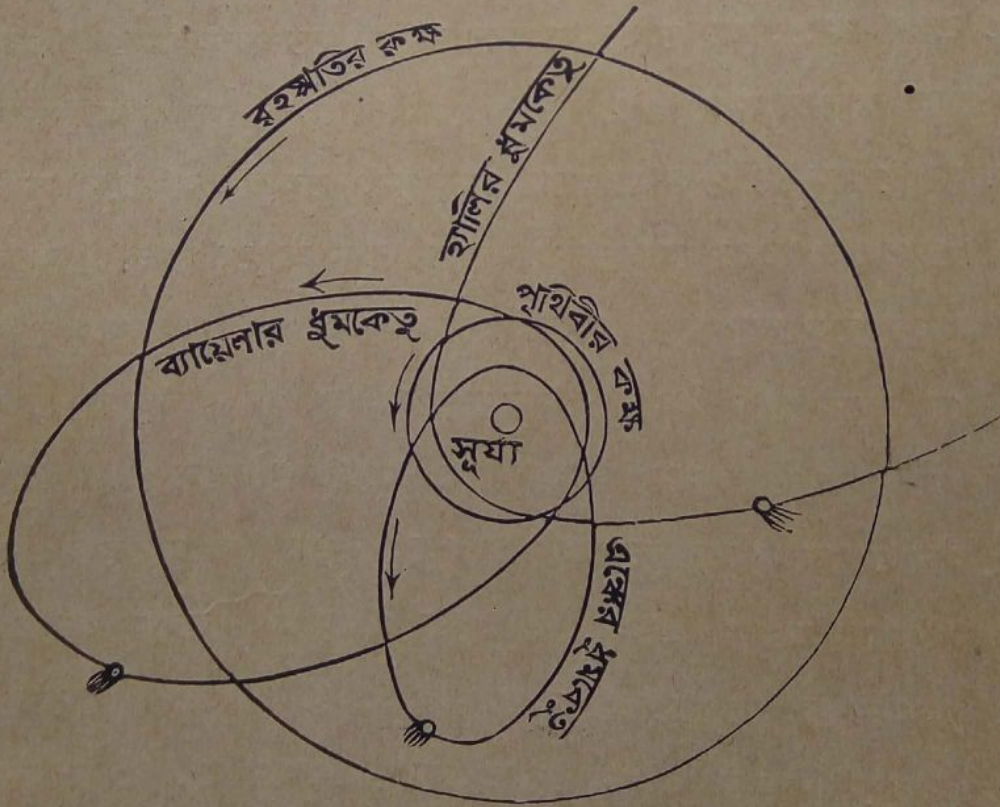 বৃহস্পতির কক্ষ
হ্যালির ধুমকেতু
ব্যায়েলার ধুমকেতু
পৃথিবীর কক্ষ
সূর্য্য
এঙ্কের ধুমকেতু